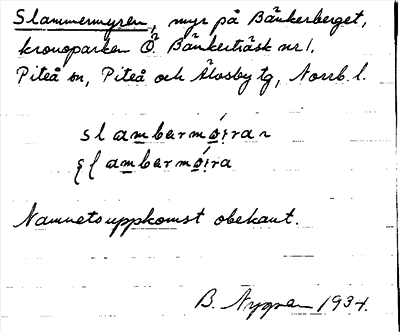 Slammermyren, myr på Bänkerberget,
kronoparken Ö. Bänkerträsk nr 1.
Piteå sn, Piteå och Älvsby tg, Norrb. l.
slambarmø̄iran
ʂlambarmø̄ira
Namnets uppkomst obekant.
B. Nygren 1934.